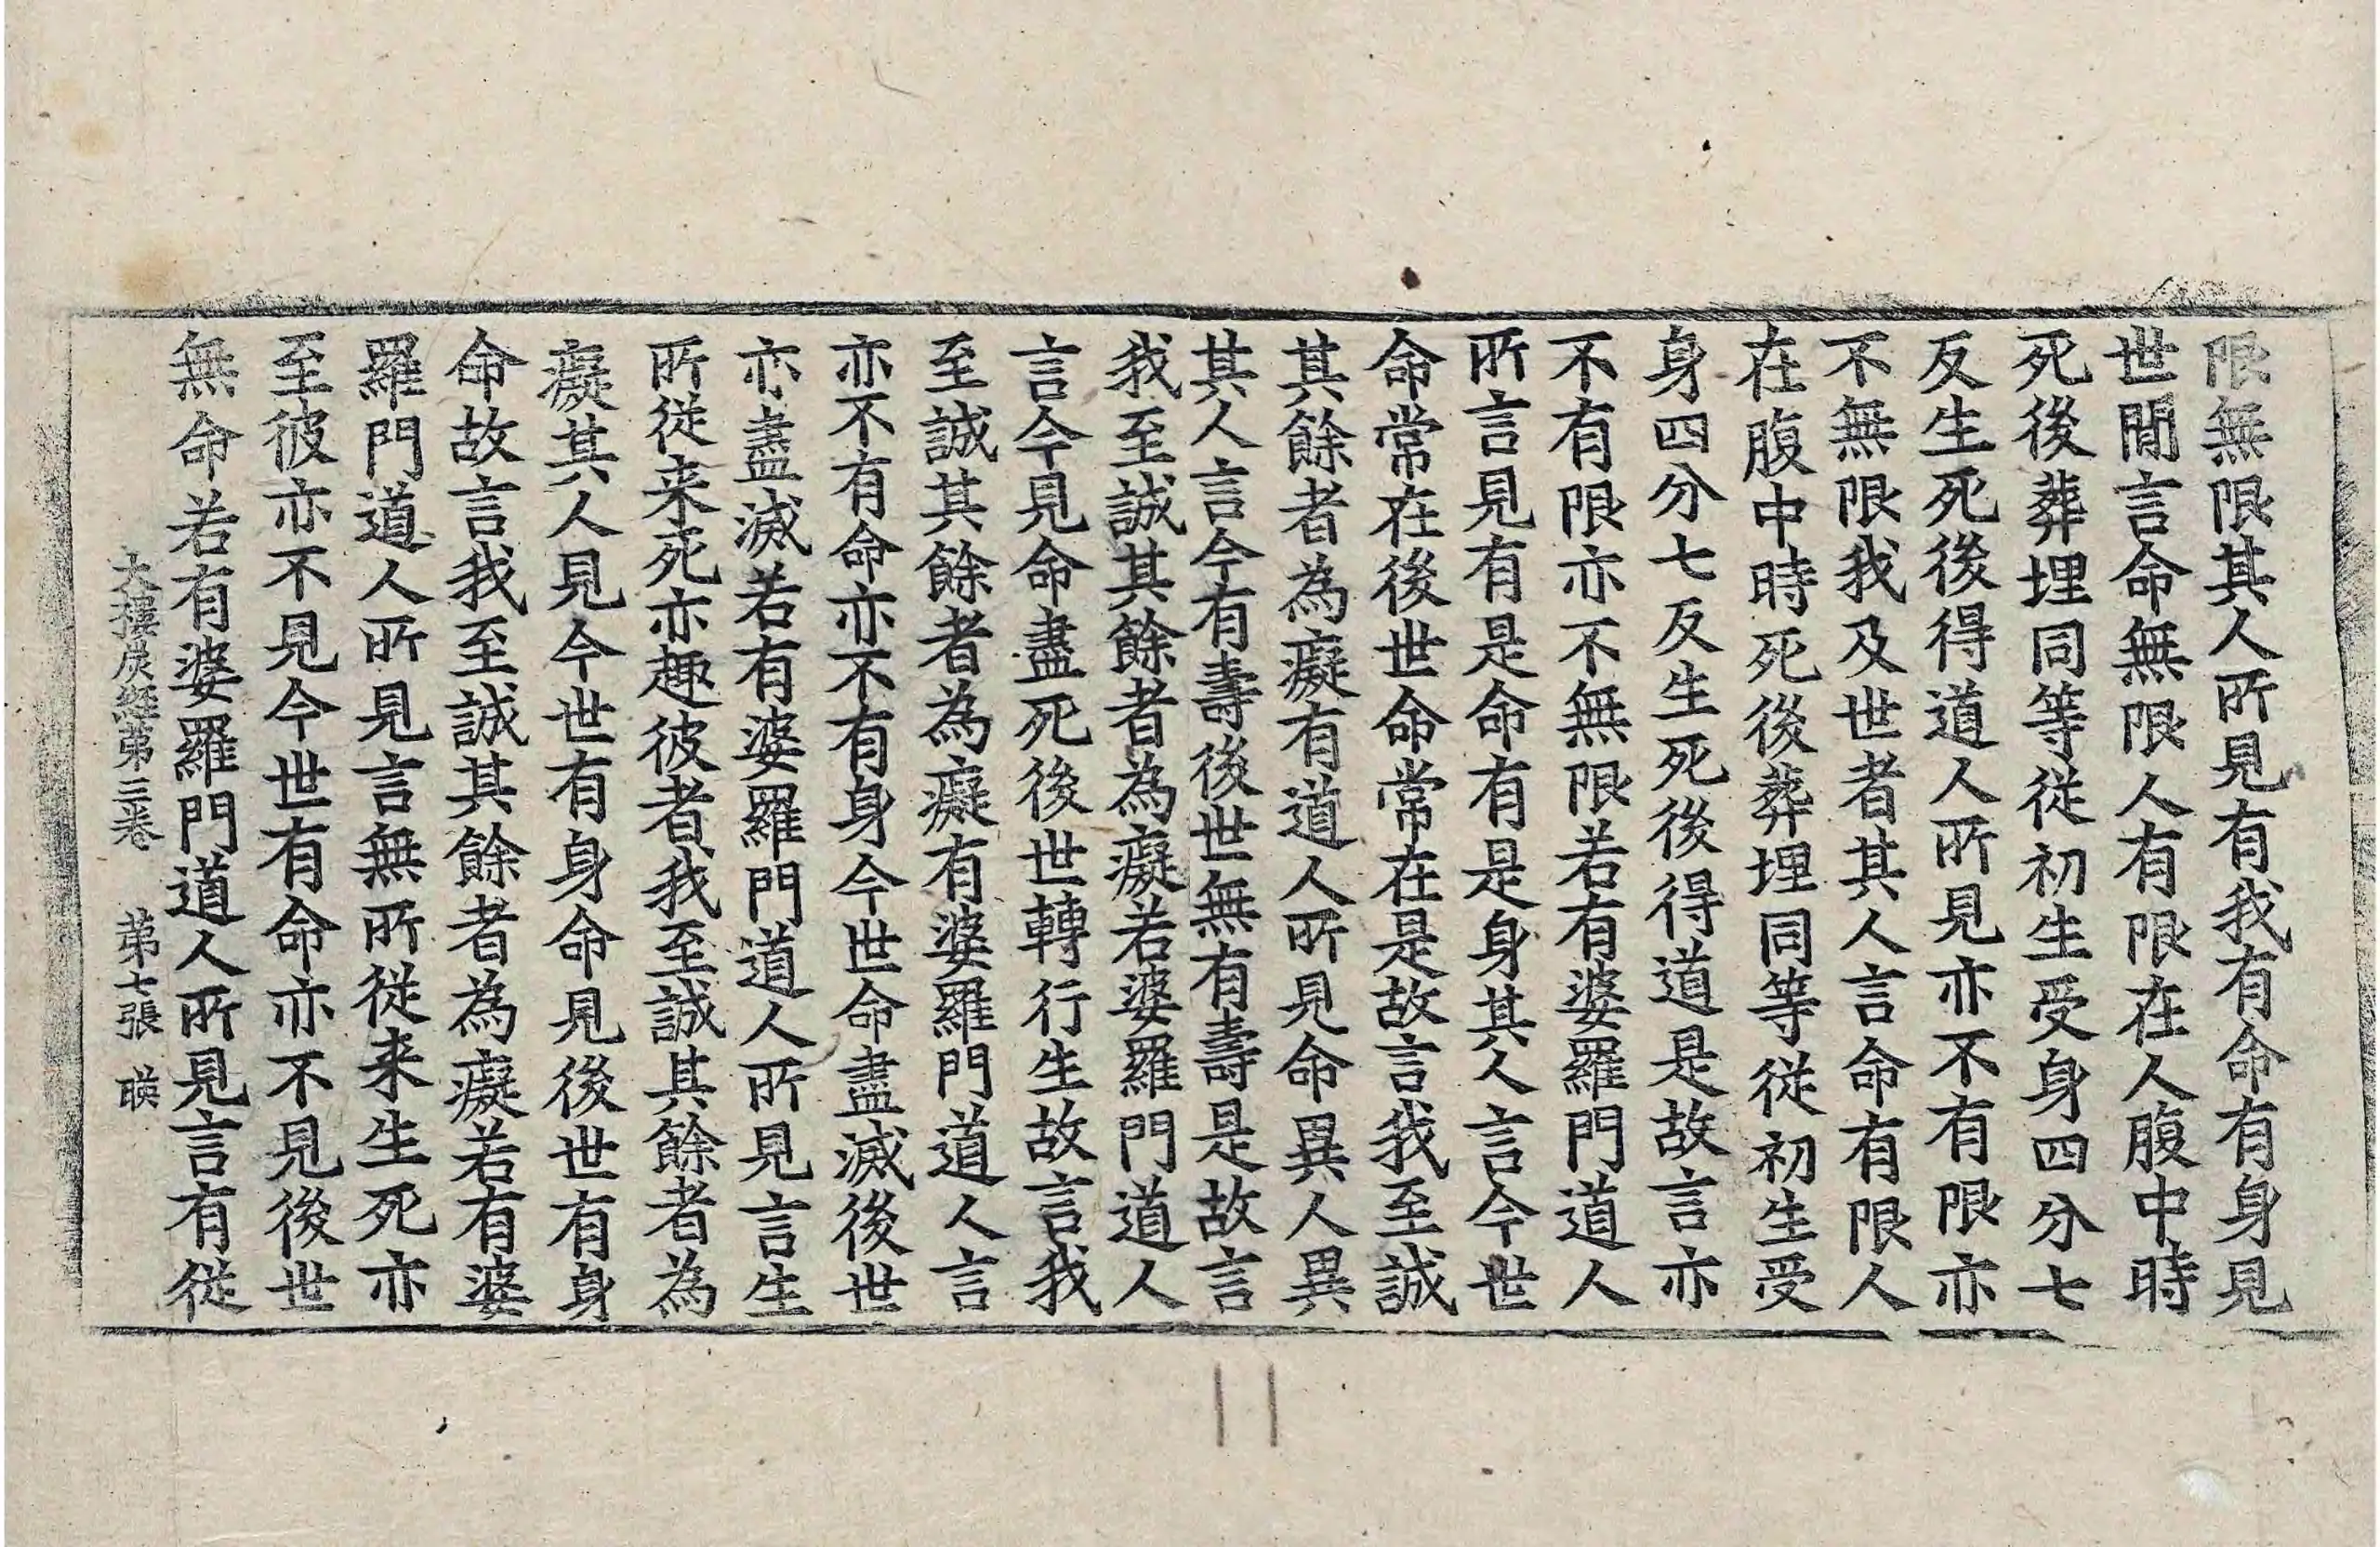 限無限其人所見有我有命有身見
世間言命無限人有限在人腹中時
死後葬埋同等從初生受身四分七
反生死後得道人所見亦不有限亦
不無限我及世者其人言命有限人
在腹中時死後葬埋同等從初生受
身四分七反生死後得道是故言亦
不有限亦不無限若有婆羅門道人
所言見有是命有是身其人言今世
命常在後世命常在是故言我至誠
其餘者為癡有道人所見命異人異
其人言今有壽後世無有壽是故言
我至誠其餘者為癡若婆羅門道人
言今見命盡死後世轉行生故言我
至誠其餘者為癡有婆羅門道人言
亦不有命亦不有身今世命盡滅後世
亦盡滅若有婆羅門道人所見言生
所從来死亦趣彼者我至誠其餘者為
癡其人見今世有身命見後世有身
命故言我至誠其餘者為癡若有婆
羅門道人所見言無所從来生死亦
至彼亦不見今世有命亦不見後世
無命若有婆羅門道人所見言有從
大樓炭經第三卷 第七張 暎